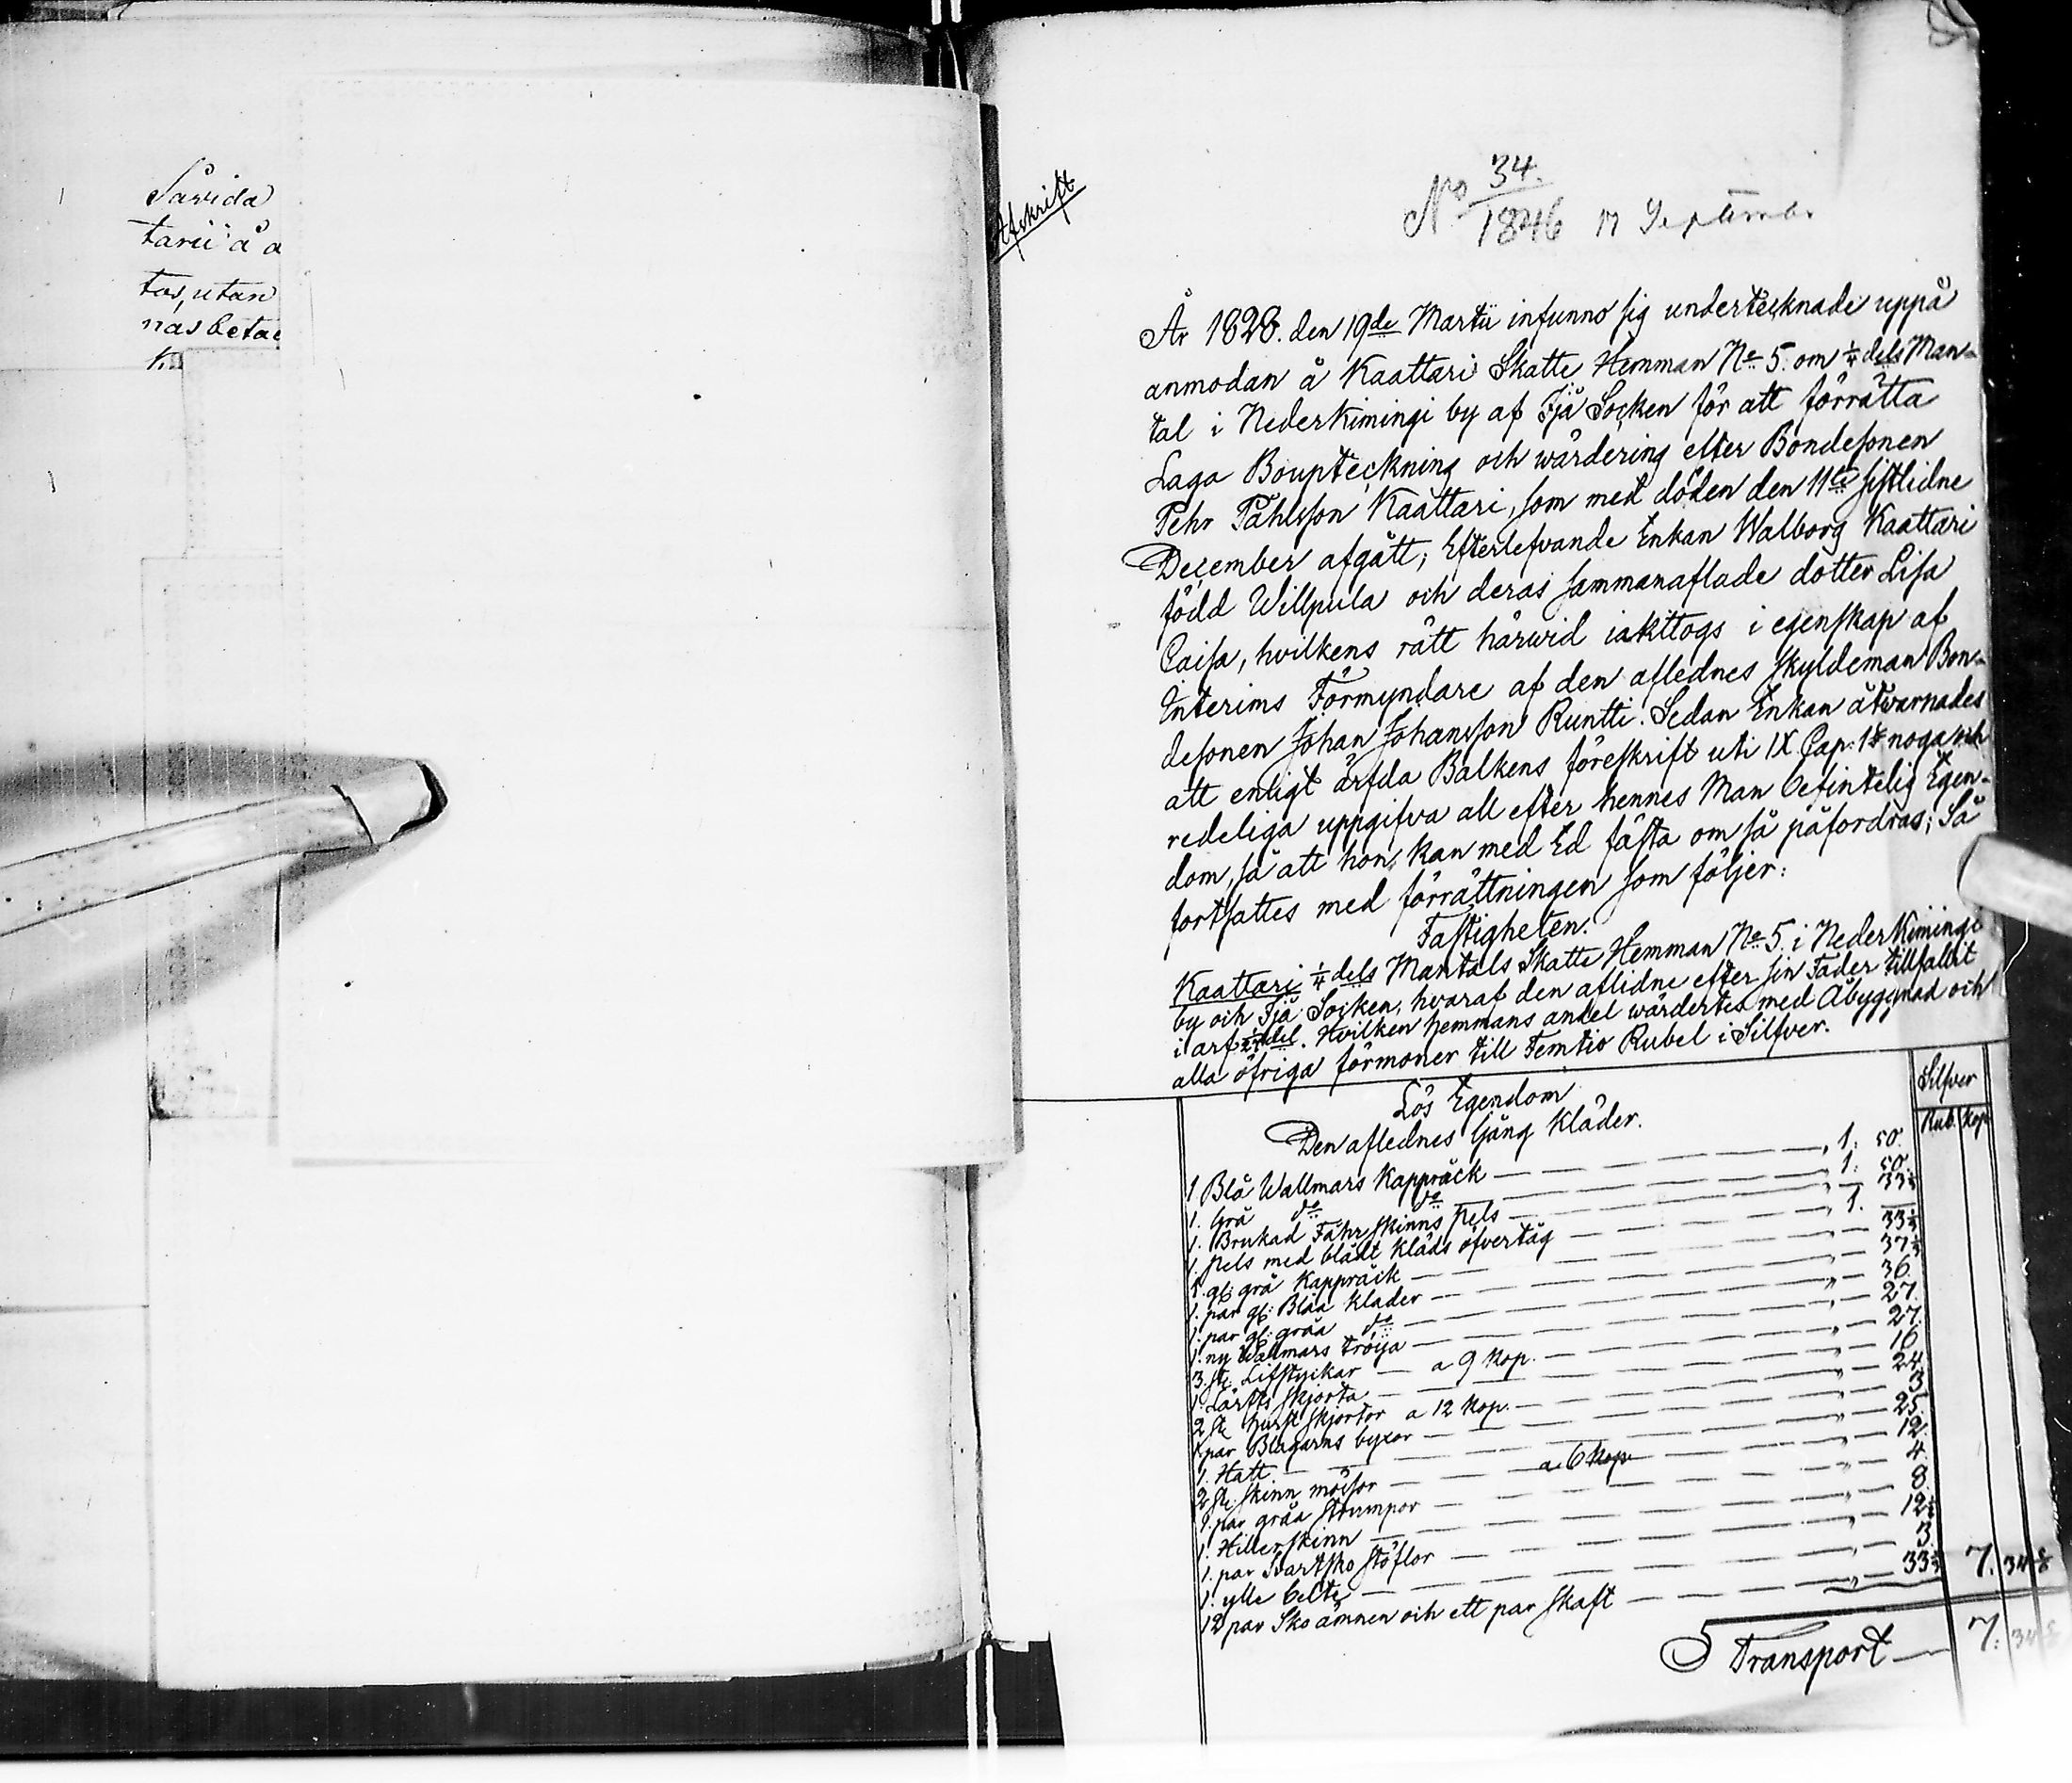 Såvida
tarii å a
tas, utan
nas betac
Afskrift
No 34.
1846 17 September
År 1828. den 19de Martii infunno sig undertecknade uppå
anmodan å Kaattari Skatte Hemman No 5. om 1/4 dels Man-
tal i Nederkimingi by af Ijå Socken för att förrätta
Laga Boupteckning och wärdering efter Bondesonen
Pehr Påhlsson Kaattari, som med döden den 11te sistlidne
December afgått; Efterlefvande Enkan Walborg Kaattari
född Willpula och deras sammanaflade dotter Lisa
Caisa, hvilkens rätt härwid iakttogs i egenskap af
Interims Förmyndare af den aflednes skyldeman Bon-
desonen Johan Johansson Runtti. Sedan Enkan åtwarnades
att enligt ärfda Balkens föreskrift uti IX Cap: 1§ noga och
redeliga uppgifva all efter hennes Man befintelig Egen-
dom, så att hon kan med Ed fästa om så påfordras; Så
fortsattes med förrättningen som följer:
Fastigheten.
Kaattari 1/4 dels Mantals Skatte Hemman No 5. i NederKimingi
by och Ijå Socken, hvaraf den aflidne efter sin Fader tillfallit
i arf del. Hvilken hemmans andel wärdertes med Åbyggnad och
alla öfriga förmoner till Femtio Rubel i Silfver.
Silfver
Rub. Kop
Lös Egendom
Den aflednes Gång Kläder.
1 Blå Wallmars Kappråck — 1: 50.
1. Grå do do — 1: 50.
1. Brukad Fåhrskinns pels — „ 33 1/3
1. Pels med blådt kläds öfvertåg — 1. —
1. gl: grå Kappråck — 33 1/3
1. par gl: Blåa Klader — „ 37 1/2
1. par gl: gråa do — „ 36.
1. ny Wallmars tröija — „ 27.
3. st: Lifstyckar — a 9 Kop. — „ 27.
1. Lärfts skjorta — „ 16
2 st hurst skjortor a 12 Kop. — „ 24.
1 par Blagarns byxor — „ 3
1. Hatt — „ 25.
2 st: skinn mössor — a. 6 Kop — „ 12.
1. par gråa strumpor — „ 4.
1. Hillerskinn — „ 8.
1. par Svartsko stöflor — „ 12 1/2
1. ylle bälte — „ 3.
12 par Sko ämnen och ett par skaft — „ 33 1/3 7. 34
Transport — 7: 34